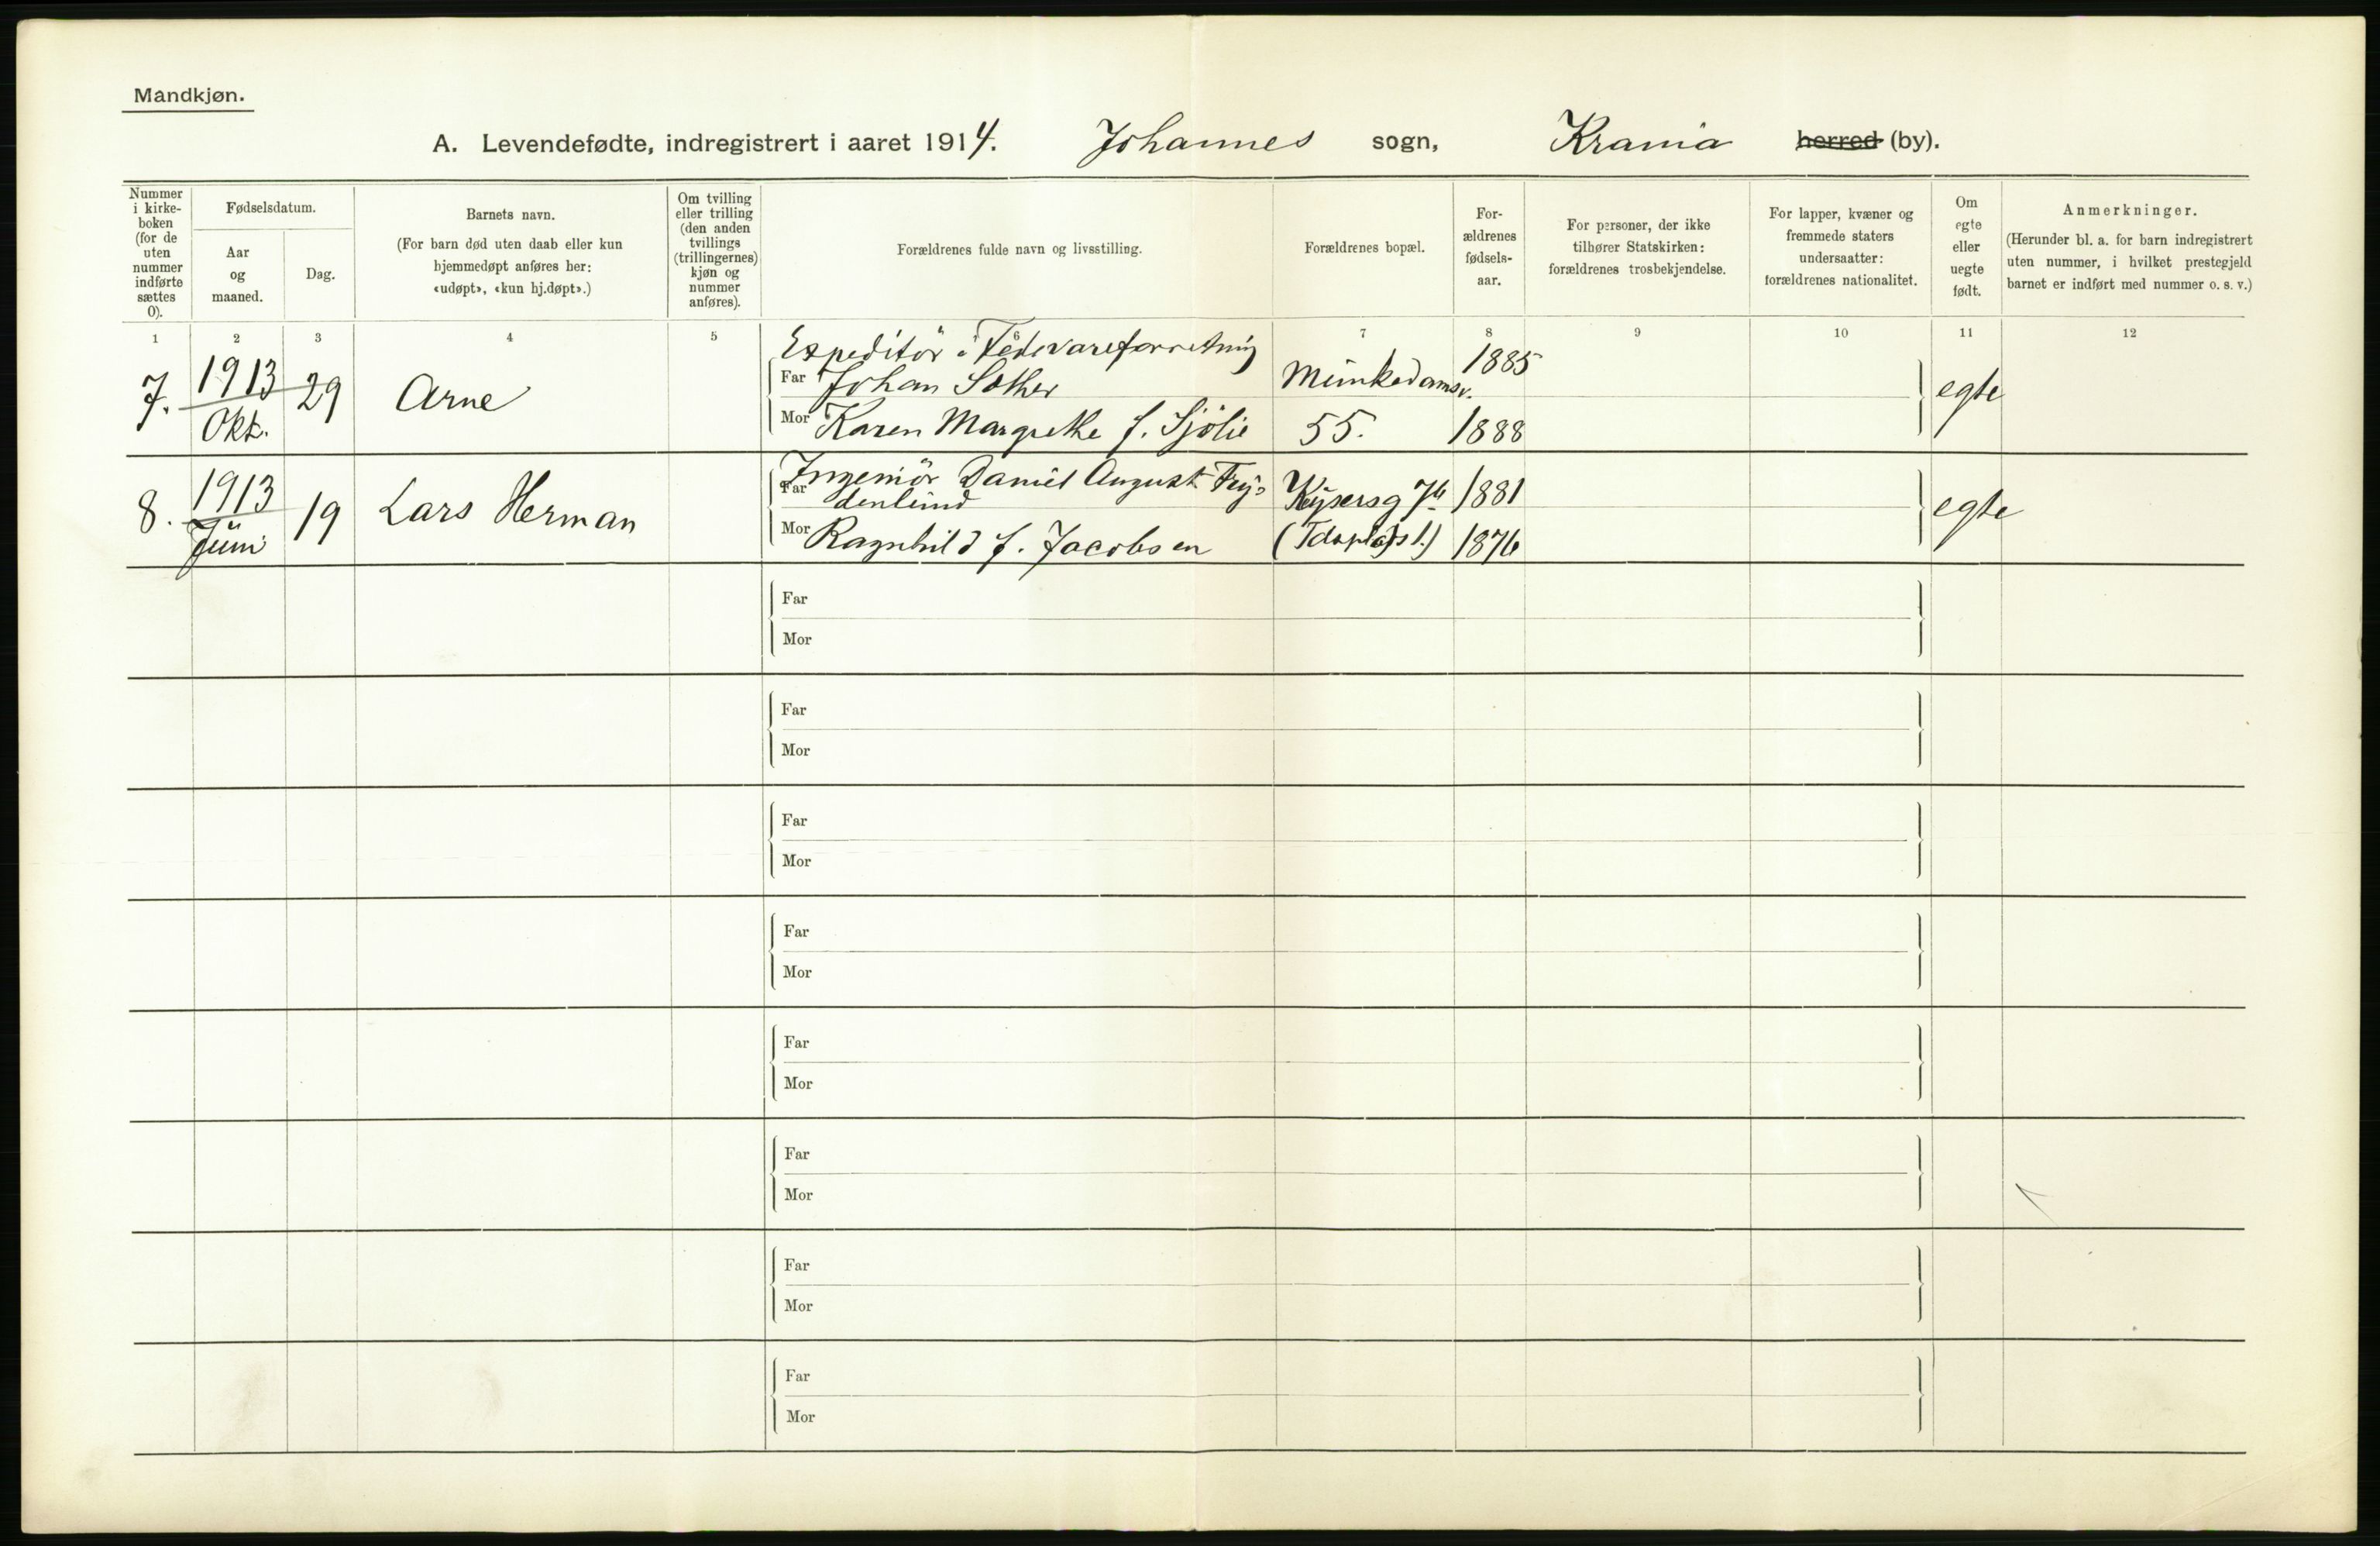 Mandkjøn.
A. Levendefødte, indregistrert i aaret 1914. Johannes sogn, Krania herred (by).
Nummer i kirke-boken (for de uten nummer indførte sættes 0).
Fødselsdatum.
Aar og maaned.
Dag.
Barnets navn.
(For barn død uten daab eller kun hjemmedøpt anføres her: «udøpt», «kun hj.døpt».)
Om tvilling eller trilling (den anden tvillings (trillingernes) kjøn og nummer anføres).
Forældrenes fulde navn og livsstilling.
Forældrenes bopæl.
For-ældrenes fødsels-aar.
For personer, der ikke tilhører Statskirken: forældrenes trosbekjendelse.
For lapper, kvæner og fremmede staters undersaatter: forældrenes nationalitet.
Om egte eller uegte født.
Anmerkninger.
(Herunder bl. a. for barn indregistrert uten nummer, i hvilket prestegjeld barnet er indført med nummer o. s. v.)
1 2 3 4 5 7 8 9 10 11 12
7. 1913 Okt. 29 Arne
Expeditör i Fedevareforretning
Far Johan Sother Munkedamsv. 1885
Mor Karen Margrethe f. Sjölie 55. 1888
egte
8. 1913 Juni 19 Lars Herman
Far Ingeniör Daniel August Fry-
denlund Keysersg 7b 1881
Mor Ragnhild f. Jacobsen 1876
egte
Far
Mor
Far
Mor
Far
Mor
Far
Mor
Far
Mor
Far
Mor
Far
Mor
Far
Mor